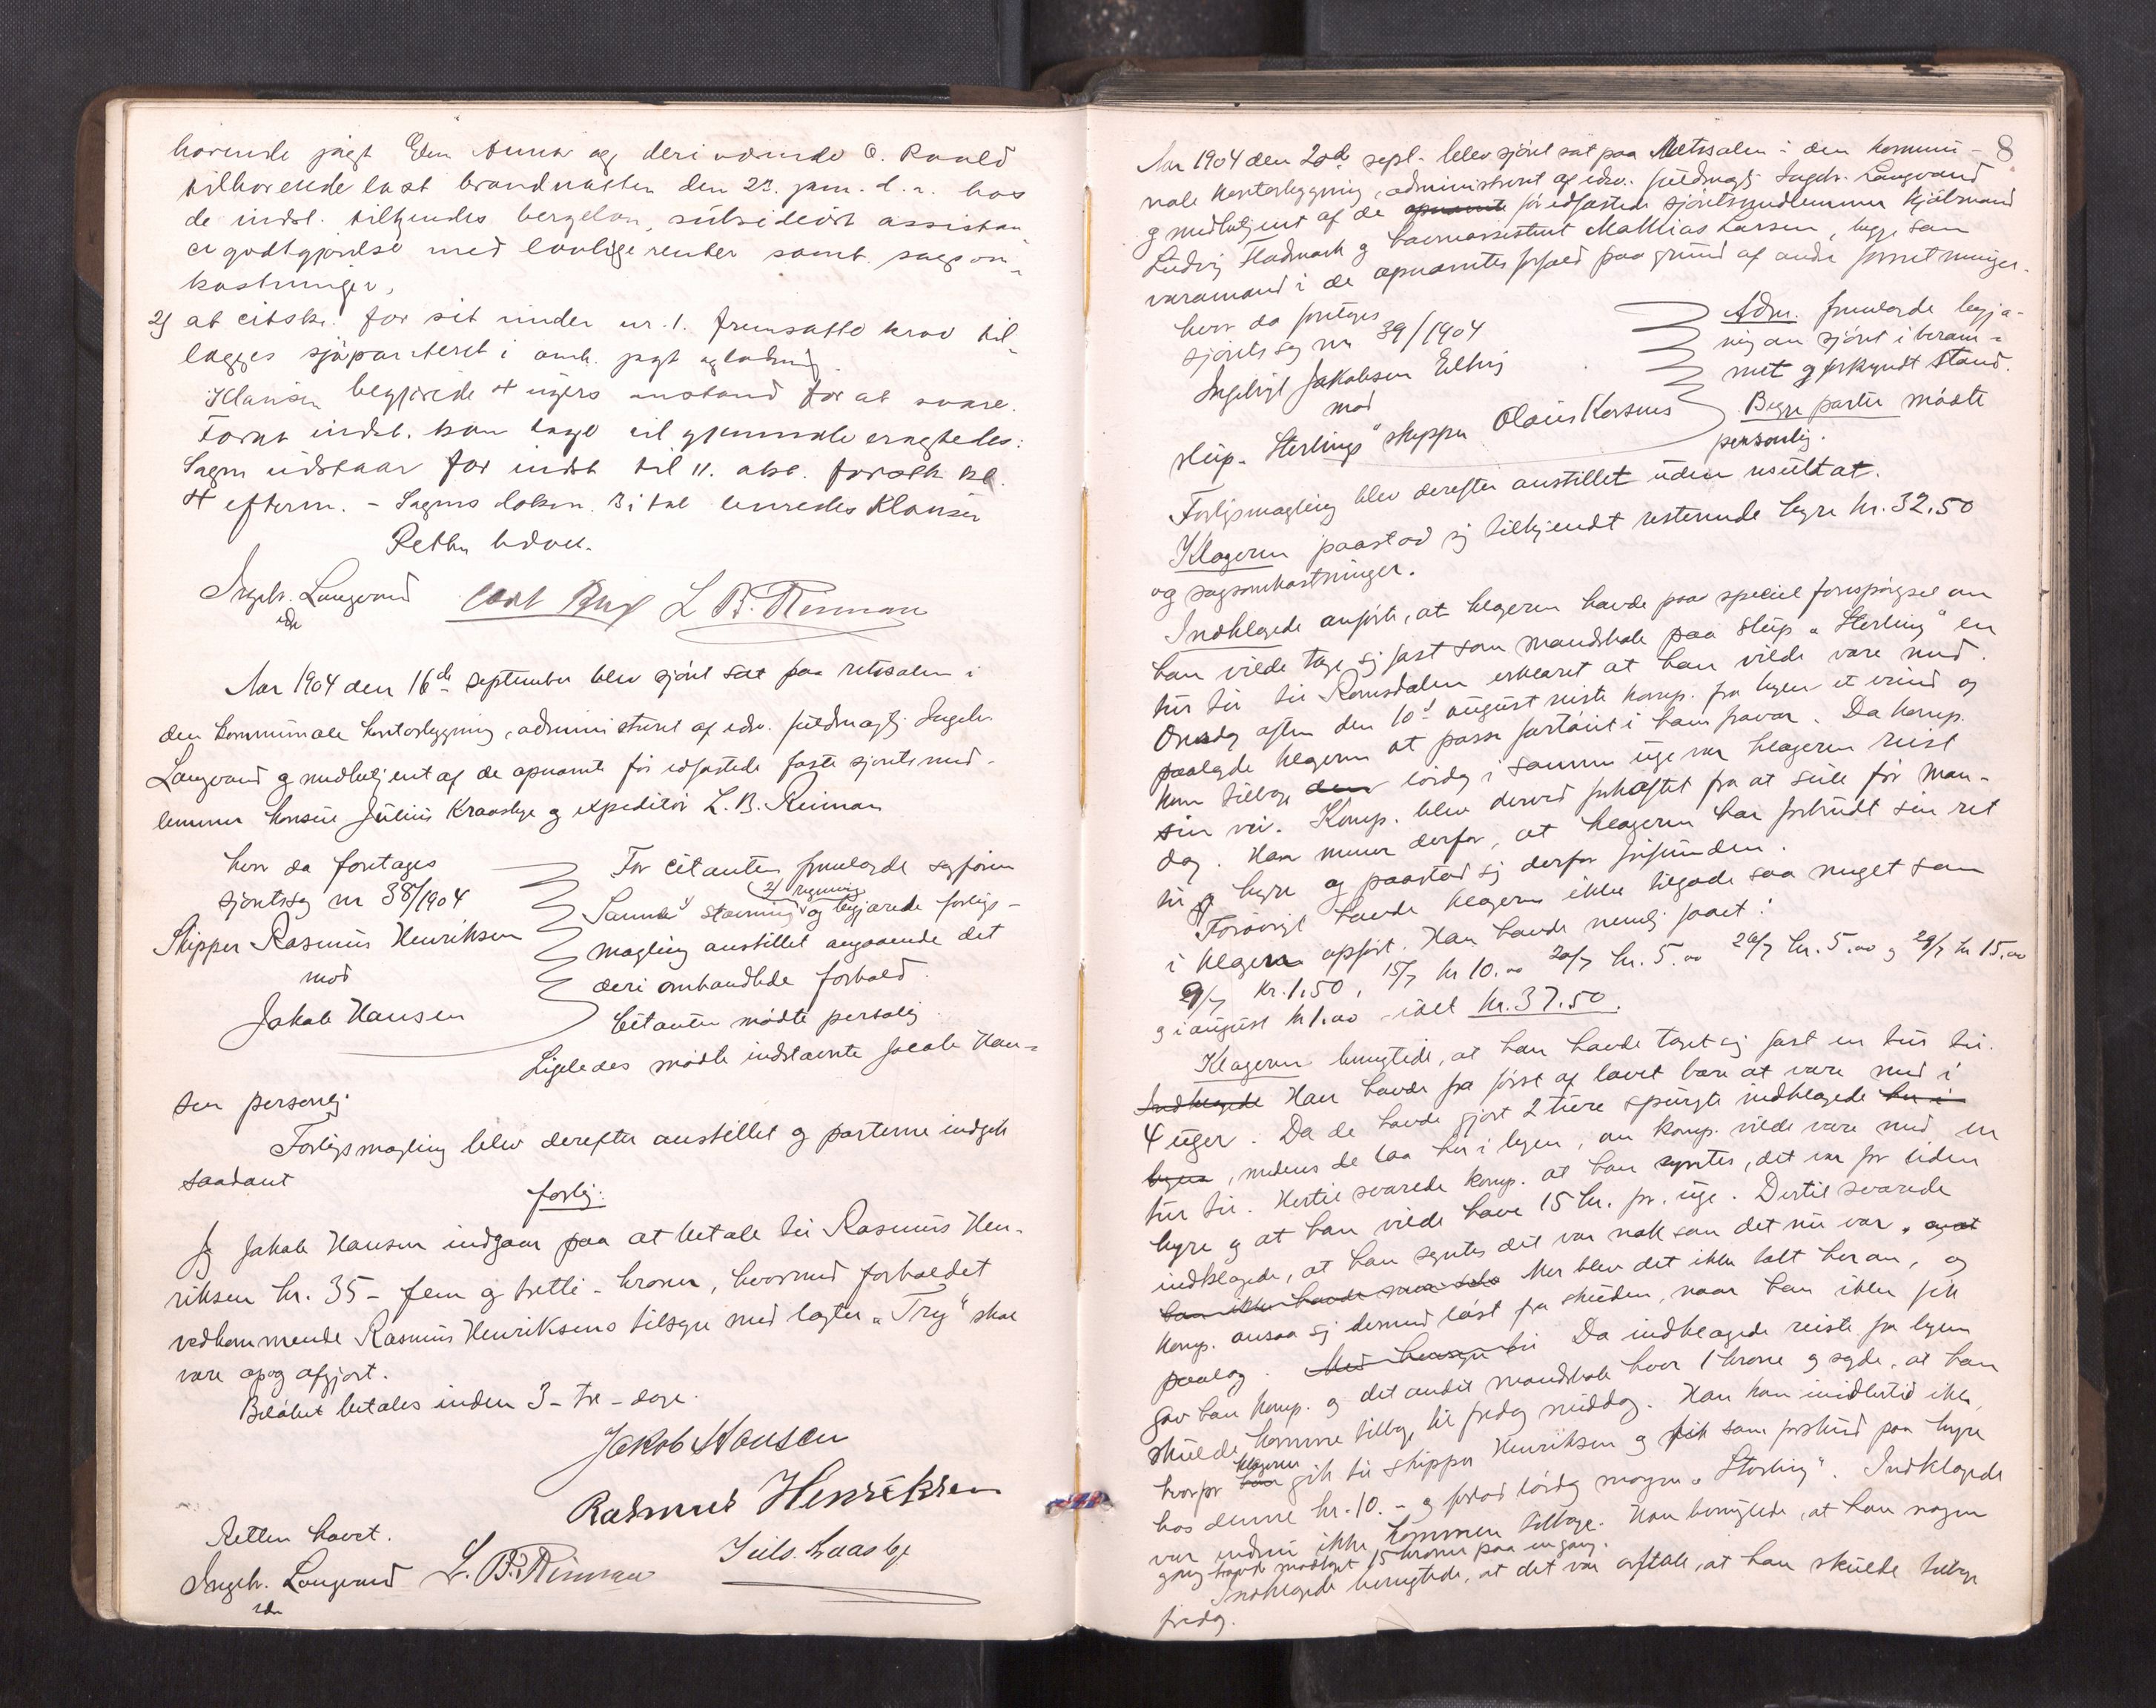 hørende jagt Elen Anna og deri værende O. Roald
tilhørende last brandnatten den 23. jan. d. a. hos
de indst. tilkjendes bergeløn, subsidiært assistan
ce godtgjørelse med lovlige renter samt sagsom-
kostninger,
2) at citsts. for sit under nr. 1. fremsatte krav til-
lægges sjøpanteret i omh. jagt og ladning
Klausen begjærede 4 ugers anstand for at svare.
4 efterm. - Sagens dokum. 3 i tal leveredes Klausen
Retten hævet.
Ingebr. Langvand
L. B. Reiman
Aar 1904 den 16de september blev sjøret sat paa retssalen i
den kommunale kontorbygning, administreret af edsv. fuldmægtig Ingebr.
Langvand og medbetjent af de opnævnte før edfæstede faste sjøretsmed-
lemmer konsul Julius Kraasbye og expeditør L. B. Reiman
hvor da foretages
sjøretssag nr 38/1904
Skipper Rasmus Henriksen
mod
Jakob Hansen
For citanten fremlagde sagfører
2) regning
Sunde 1) stævning og begjærede forligs-
mægling anstillet angaaende det
deri omhandlede forhold.
Citanten mødte personlig
Ligeledes mødte indstævnte Jacob Han-
sen personlig.
Forligsmægling blev derefter anstillet og parterne indgik
saadant
forlig:
Jeg Jakob Hansen indgaar paa at betale til Rasmus Hen-
riksen kr. 35 - fem og tretti - kroner, hvormed forholdet
vedkommende Rasmus Henriksens tilsyn med lægter „Try" skal
være op og afgjort.
Beløbet betales inden 3 - tre - dage.
Jakob Hansen
Rasmus Henriksen
Retten hævet.
Ingebr. Langvand L. B. Reiman
8
Aar 1904 den 20de sept. blev sjøret sat paa Retssalen i den kommu-
nale kontorbygning, administreret af edsv. fuldmægtig Ingebr. Langvand
og medbetjent af de opnævnte før edfæstede sjøretsmedlemmer
Ludvig Hadmark og havneassistent Mathias Larsen, begge som
varamænd i de opnævntes forfald paa grund af andre forretninger.
hvor da foretages
sjøretssag nr 39/1904
Ingebrigt Jakobsen
mod
slup „Sterlings" skipper Olaus Korsnes
Adm. fremlagde begjæ-
ring om sjøret i beram-
met og forkyndt stand.
Begge parter mødte
personlig.
Forligsmægling blev derefter anstillet uden resultat.
Klageren paastod sig tilkjendt resterende hyre kr. 32.50
og sagsomkostninger.
Indklagede anførte, at klageren havde paa speciel forespørgsel om
han vilde tage sig fast som mandskab paa slup „Sterling" en
tur til til Romsdalen erklæret at han vilde være med.
Onsdag aften den 10de august reiste komp. fra byen et ærind og
paalagde klageren at passe fartøiet i hans fravær. Da komp.
kom tilbage den lørdag i samme uge var klageren reist
sin vei. Komp. blev derved forhæftet fra at seile før man-
dag. Han mener derfor, at klageren har forbrudt sin ret
til hyre og paastod sig derfor frifunden.
Forøvrigt havde klageren ikke tilgode saa meget som
i klagen opført. Han havde nemlig faaet:
9/7 kr. 1.50, 15/7 kr 10.00 20/7 kr. 5.00 26/7 kr. 5.00 og 29/7 kr 15.00
og i august kr 1.00 - ialt kr. 37.50.
Klageren benegtede, at han havde taget sig fast en tur til.
Indklagede Han havde fra først af lovet bare at være med i
4 uger. Da de havde gjort 2 ture spurgte indklagede her i
byen, medens de laa her i byen, om komp. vilde være med en
tur til. Hertil svarede komp. at han syntes, det var for liden
hyre og at han vilde have 15 kr. pr. uge. Dertil svarede
indklagede, at han syntes det var nok som det nu var, og at
Mer blev det ikke talt herom, og
komp. ansaa sig dermed løst fra skuden, naar han ikke fik
paalæg. Da indklagede reiste fra byen
gav han komp. og det andet mandskab hver 1 krone og sagde, at han
skulde komme tilbage til fredag middag. Han kom imidlertid ikke,
klageren
hvorfor han gik til skipper Henriksen og fik som forskud paa hyre
hos denne kr. 10. - og forlod lørdag morgen „Sterling". Indklagede
var endnu ikke kommen tilbage. Han benegtede, at han nogen
gang havde modtaget 15 kroner paa en gang.
Indklagede benegtede, at det var aftale, at han skulde tilbage
fredag.